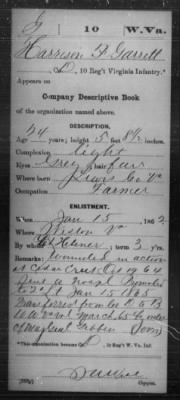 G | 10 | W.Va.
Harrison P. Garrett
Co. D, 10 Reg't Virginia Infantry.*
Appears on
Company Descriptive Book
of the organization named above.
DESCRIPTION.
Age 24 years; height 5 feet inches.
Complexion Light
Eyes Grey; hair Fair
Where born Lewis Co Va
Occupation Farmer
ENLISTMENT.
When Jan 15, 1862.
Where Weston Va
By term 3 y'rs.
Remarks: Wounded in action
at Cedar Creek Oct 19 64
Sent to
Jan 15 1865
Transferred from Co D
10 W Va Vol March 65 by order
of Maj Genl
*This organization became Co. , 10 Reg't W. Va. Inf.
Copyist.